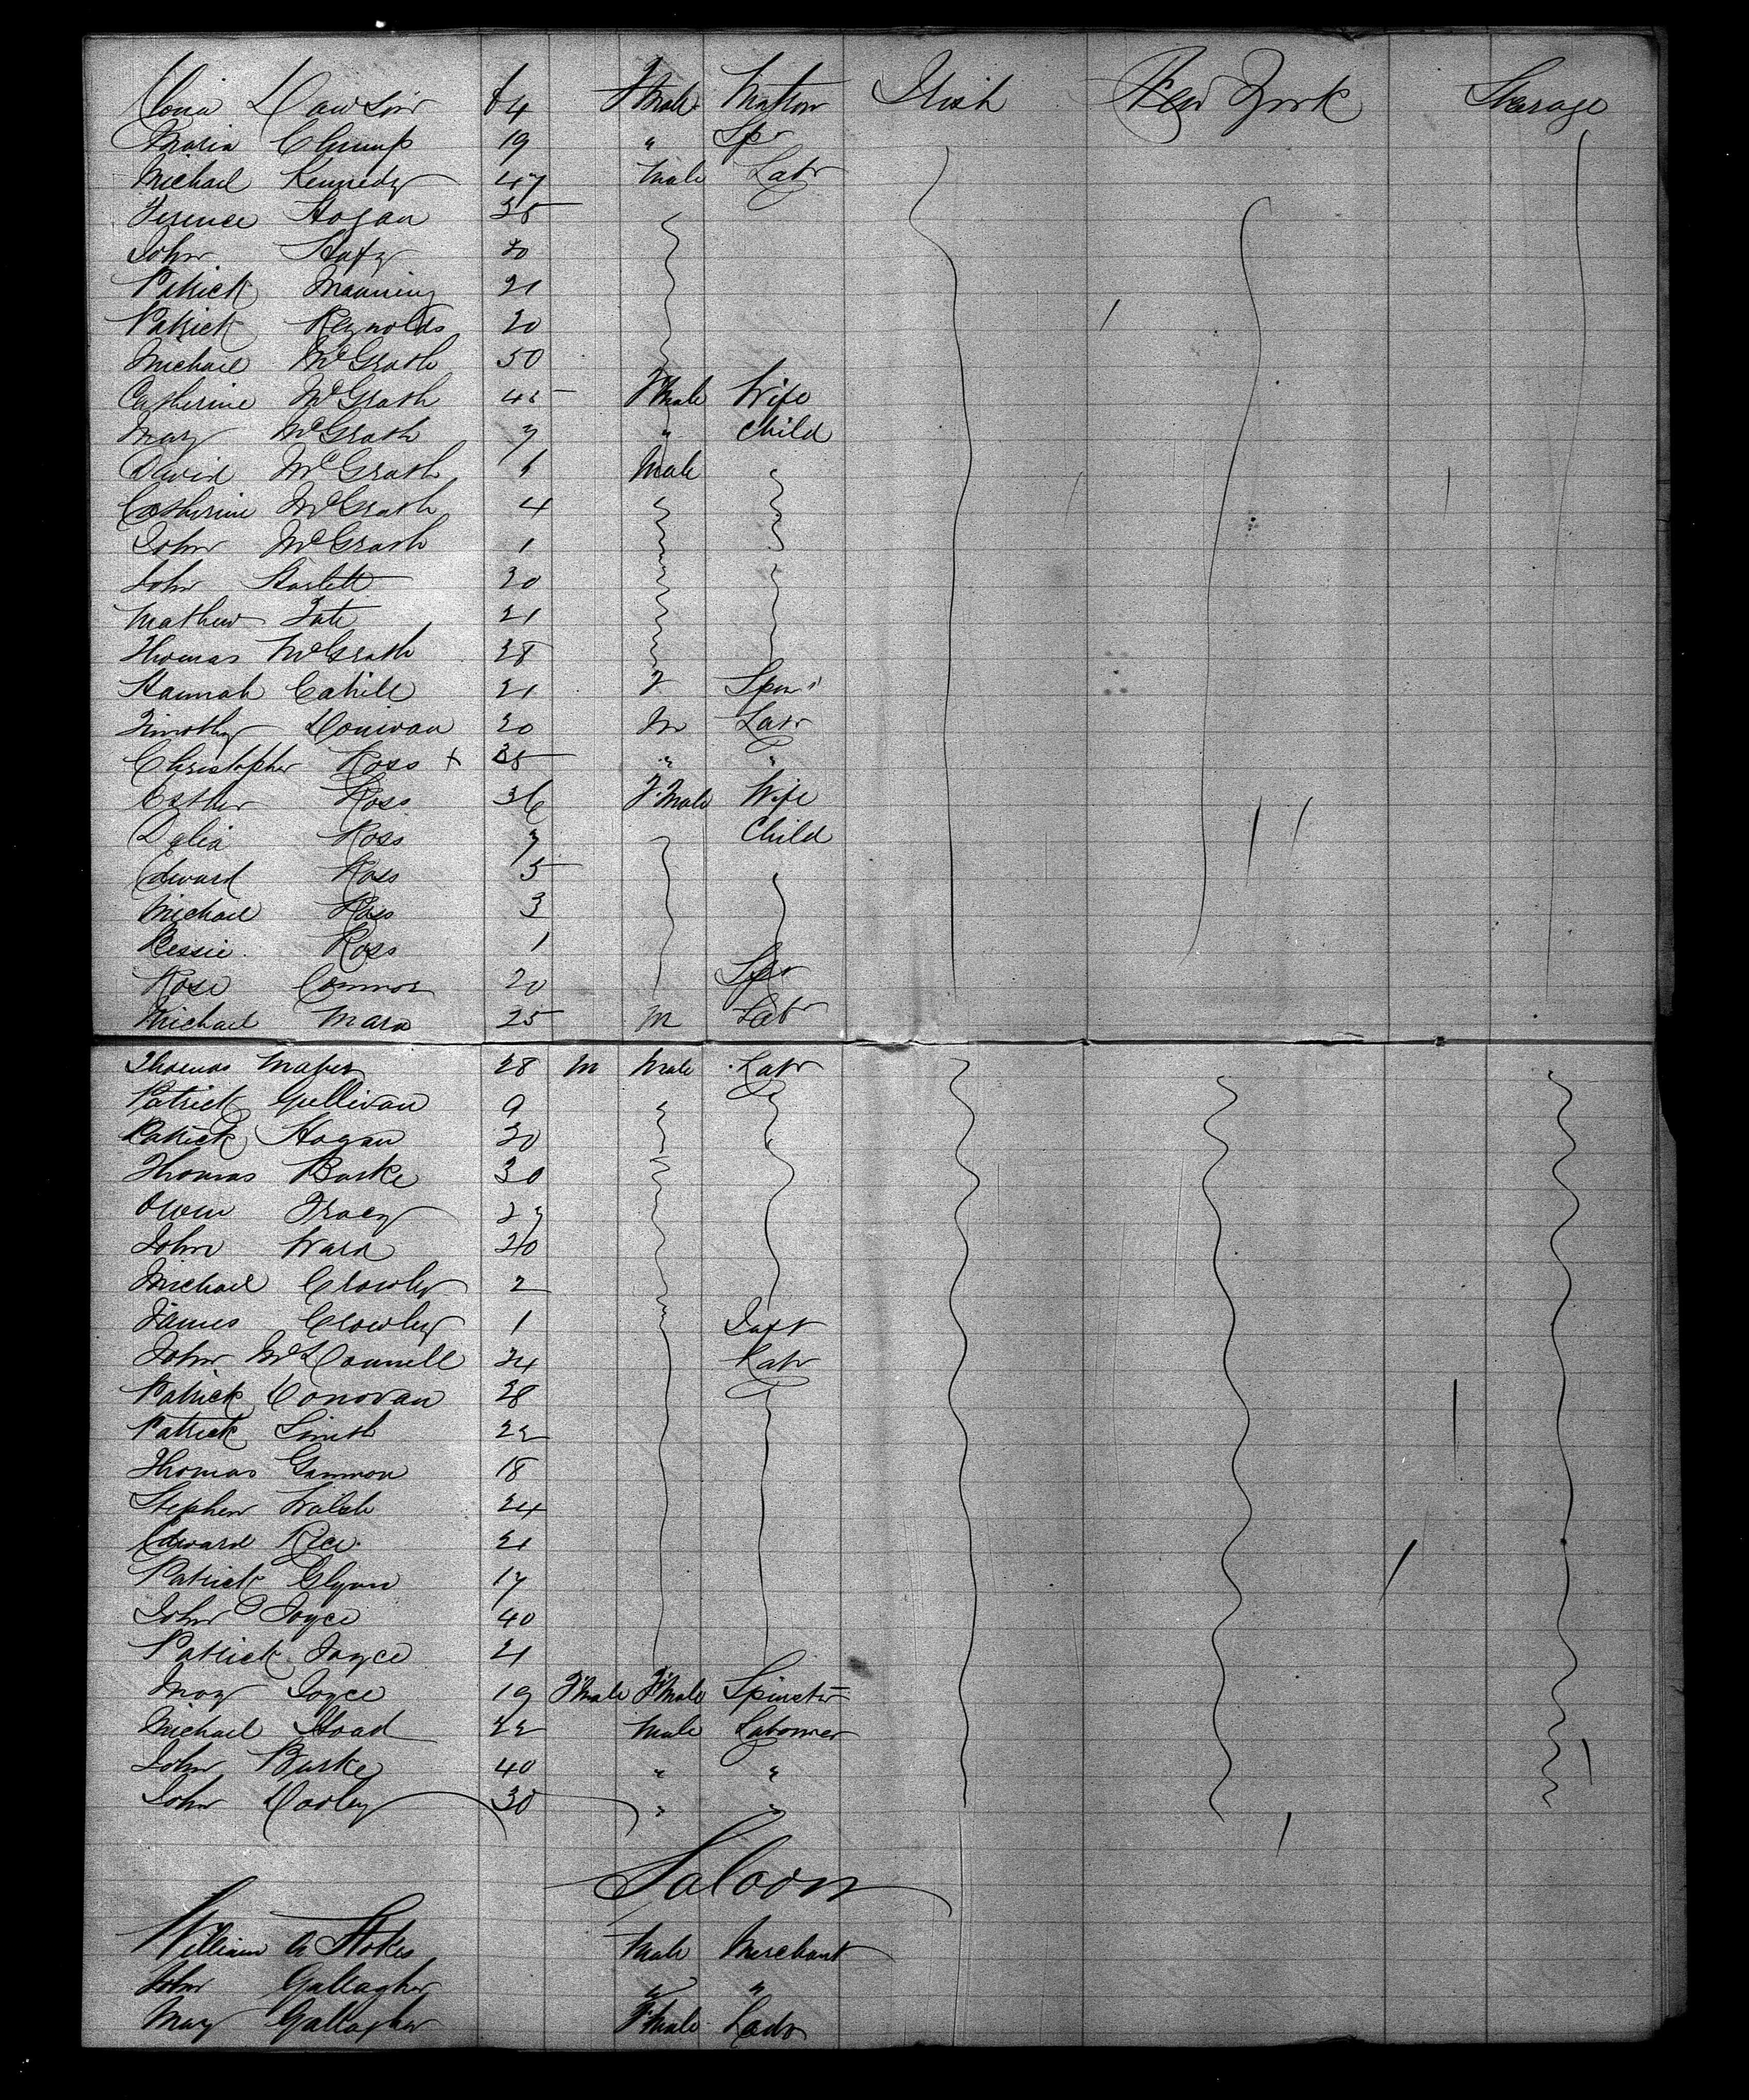 Dawson 64 Fmale Matron Irish New York Steerage
Maria Clump 19 " Spr
Michael Kennedy 47 Male Labr
Terence Hogan 35
John 20
Patrick Manning 21
Patrick Reynolds 20
Michael McGrath 50
Catherine McGrath 45 Fmale Wife
Mary McGrath 7 " Child
David McGrath 6 Male
Catherine McGrath 4
John McGrath 1
John 20
Mathew 21
Thomas McGrath 28
Hannah Cahill 21 F Spins
Timothy Donivan 20 M Labr
Christopher Ross + 35 " "
Esther Ross 36 F.Male Wife
Delia Ross 7 Child
Edward Ross 5
Michael Ross 3
Bessie Ross 1
Rose Connor 20 Spr
Michael Mara 25 M Labr
Thomas 28 M Male Labr
Patrick Gullivan 9
Patrick Hogan 30
Thomas Burke 30
Owen Tracy 27
John Ward 20
Michael Crowley 2
James Crowley 1 Inft
John McDonnell 24 Labr
Patrick Donovan 28
Patrick Smith 22
Thomas Gammon 18
Stephen Walsh 24
Edward Rice 21
Patrick Glynn 17
John Joyce 40
Patrick Joyce 21
May Joyce 19 Fmale Fmale Spinster
Michael Hoad 22 Male Labourer
John Burke 40 " "
John Dooley 30 " "
Saloon
William A Stokes Male Merchant
John Gallagher " "
May Gallagher Fmale Lady